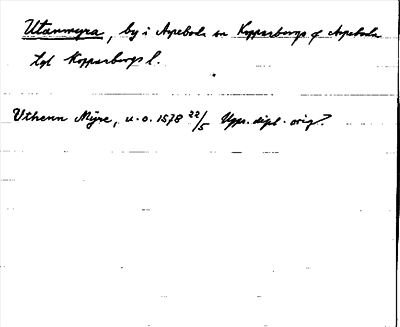 Utanmyra, by i Aspeboda sn Kopparbergs o Aspeboda
tgl Kopparbergs l.
Vthenn Myre, u.o. 1578 22/5 Upps. dipl. orig.